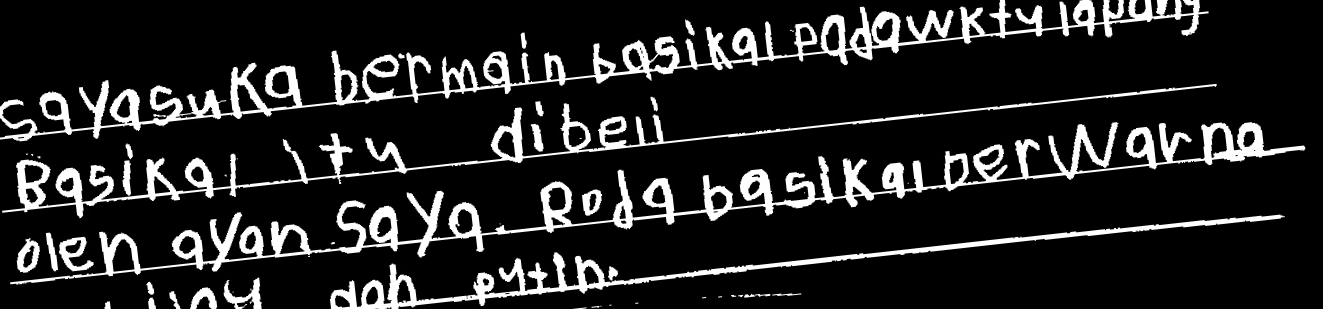 sayasuka bermain basikal padawktu lapang
Basikal itu dibeli
oleh ayah saya. Roda basikal berwarna
dan putih.